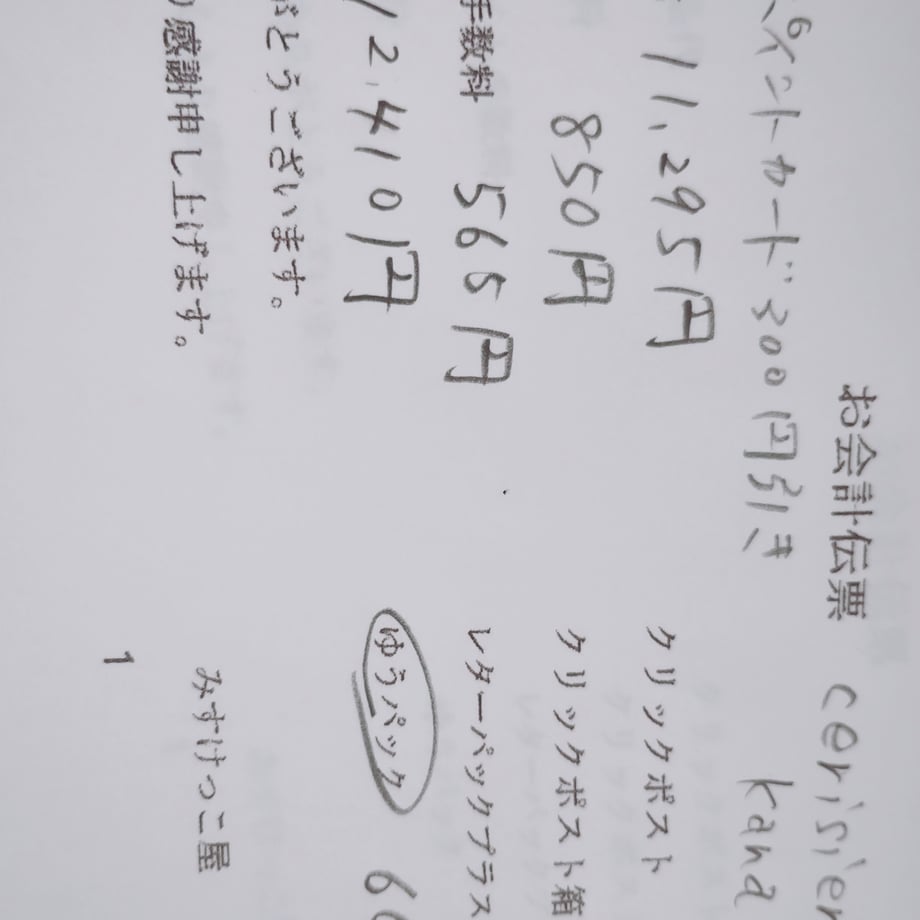 お会計伝票 cerisier
ポイントカード300円引き kana
11,295円 クリックポスト
850円 クリックポスト箱
手数料 565円 レターパックプラス
12,410円 ゆうパック 60
がとうございます。
感謝申し上げます。 みすけっこ屋
1